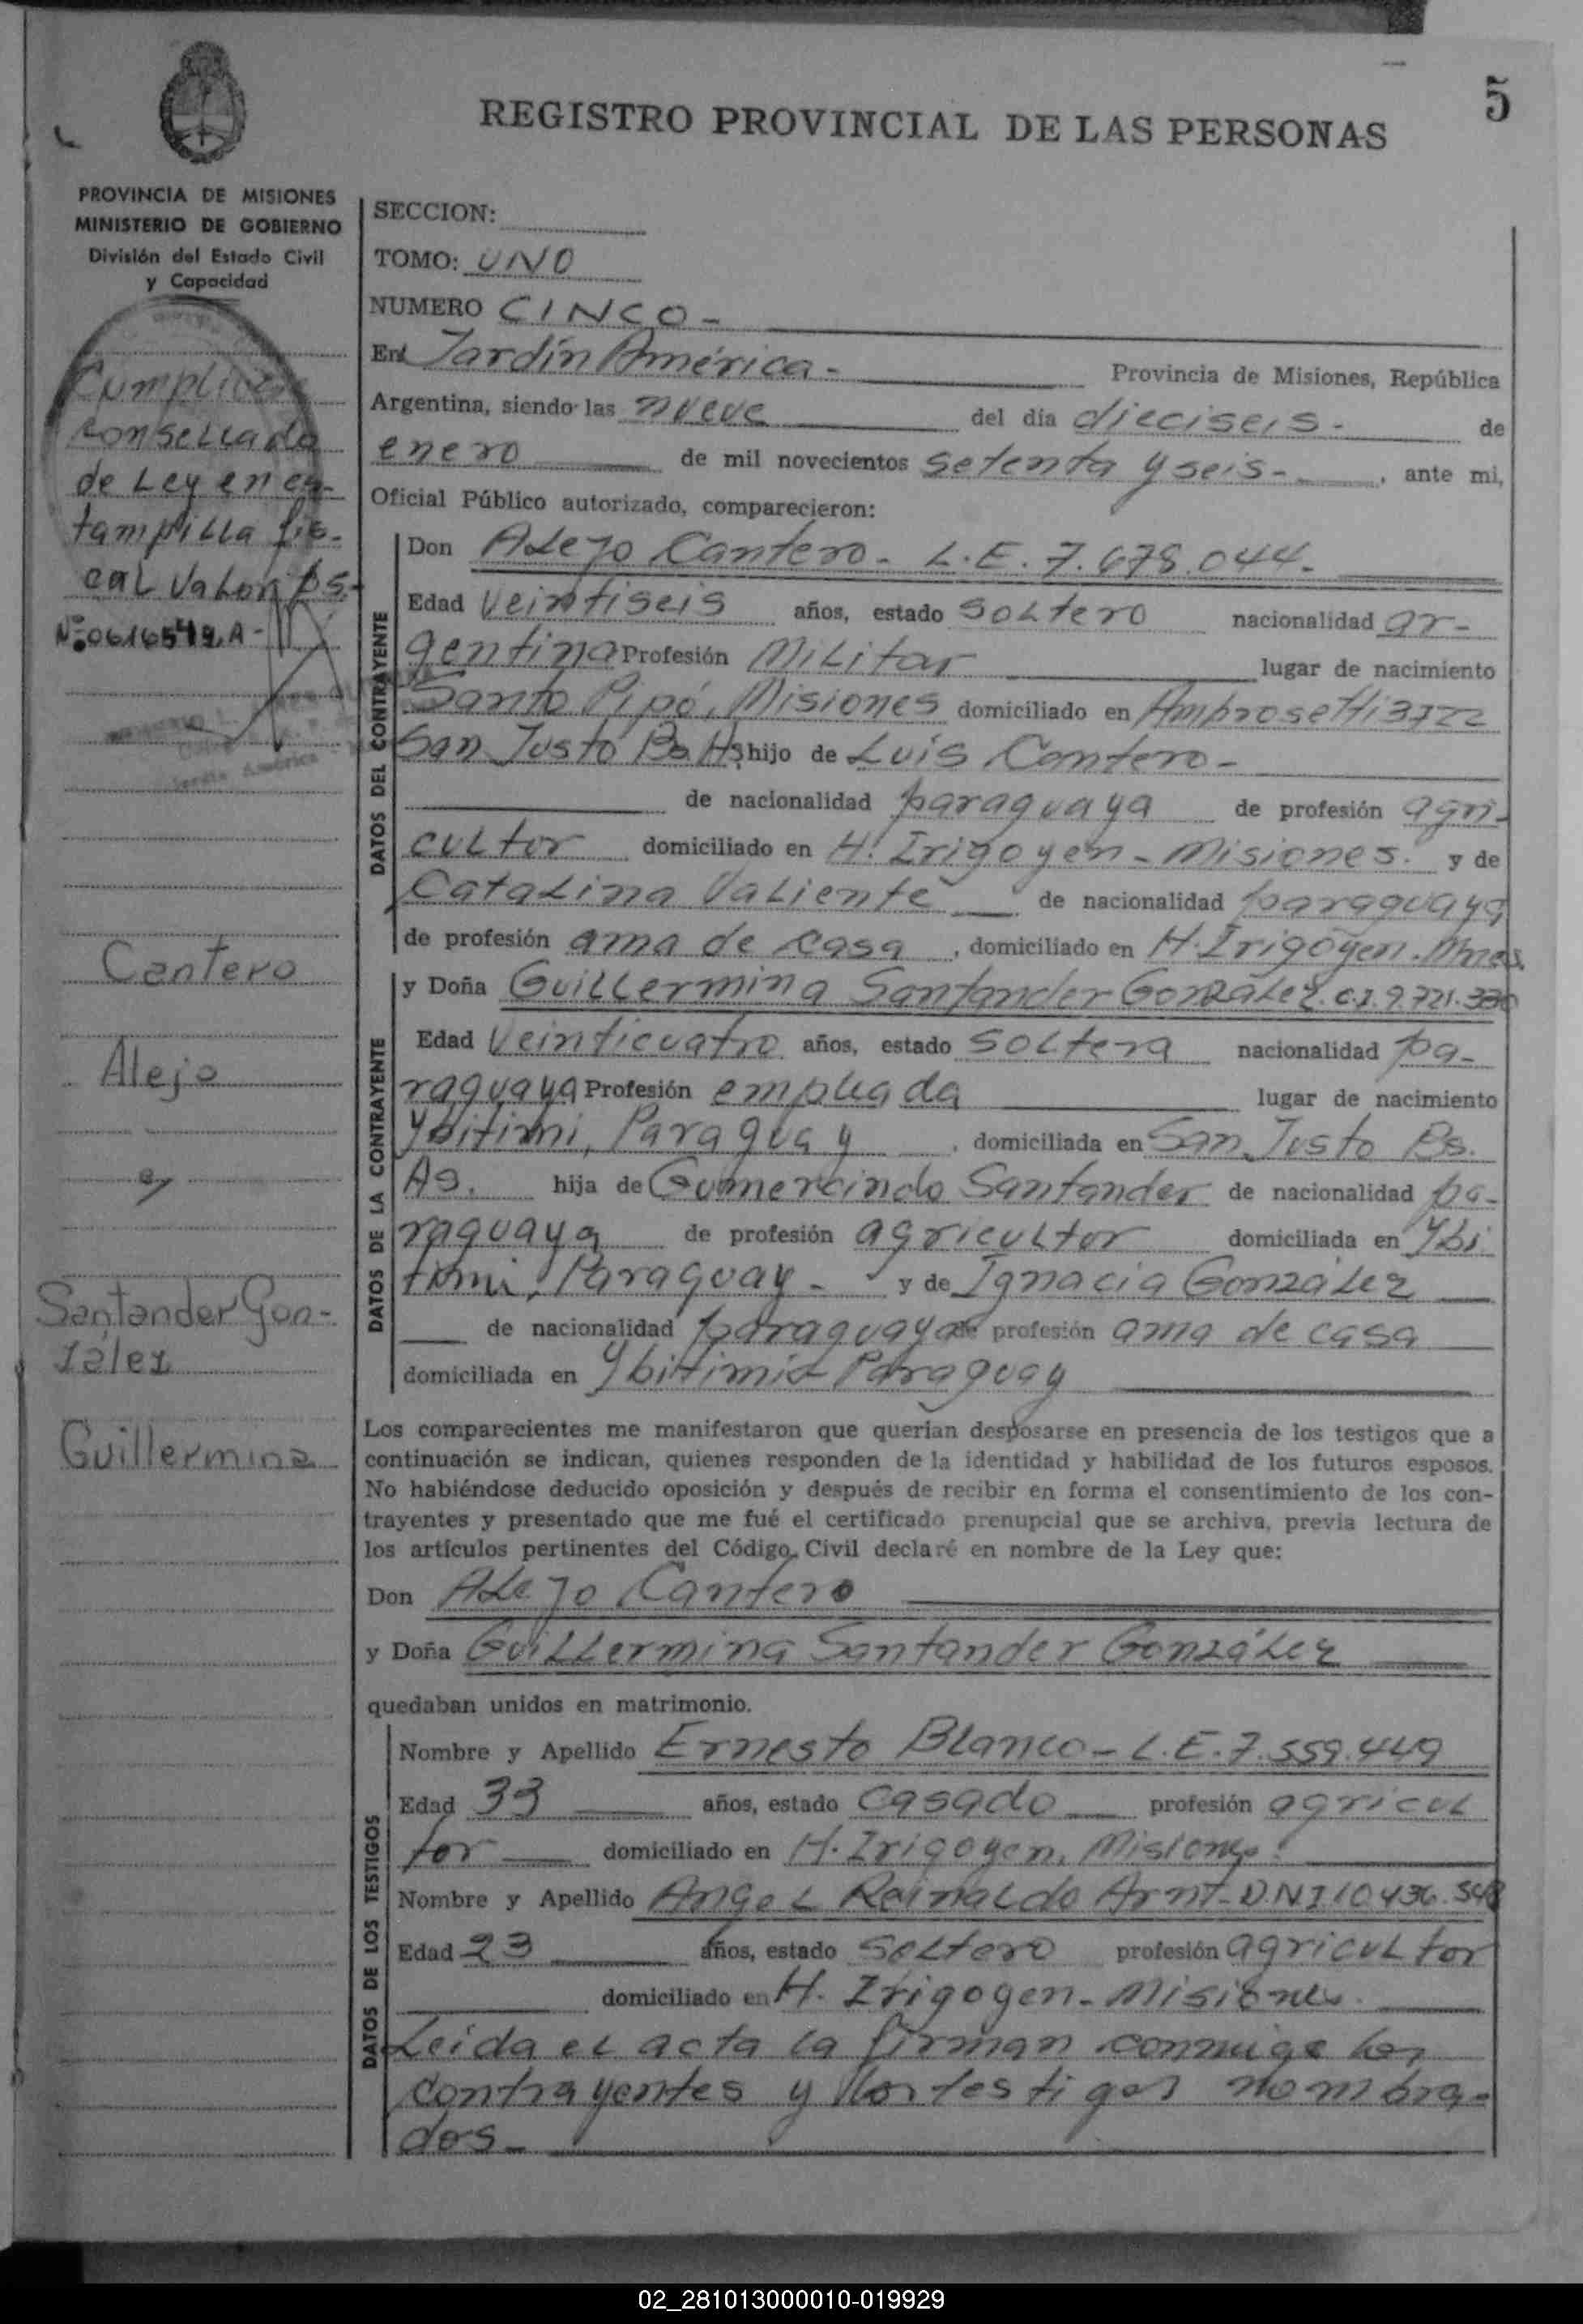 5
REGISTRO PROVINCIAL DE LAS PERSONAS
PROVINCIA DE MISIONES
MINISTERIO DE GOBIERNO
División del Estado Civil
y Capacidad
Cumplióse
con sellado
de Ley en es-
tampilla fis-
cal valor ps.-
Nº 0616549, A-
Cantero
Alejo
y
Santander Gon-
zález
Guillermina
SECCION:
TOMO: UNO
NUMERO CINCO-
En Jardín América- Provincia de Misiones, República
Argentina, siendo las nueve del día dieciseis- de
enero de mil novecientos setenta y seis- , ante mi,
Oficial Público autorizado, comparecieron:
DATOS DEL CONTRAYENTE
Don Alejo Cantero- L.E. 7.678.044-
Edad veintiseis años, estado soltero nacionalidad ar-
gentina Profesión Militar lugar de nacimiento
Santo Pipó, Misiones domiciliado en Ambrosetti 3722
San Justo Bs As, hijo de Luis Cantero-
de nacionalidad paraguaya de profesión agri-
cultor domiciliado en H. Irigoyen- Misiones. y de
Catalina Valiente de nacionalidad paraguaya
de profesión ama de casa , domiciliado en H. Irigoyen. Mnes.
DATOS DE LA CONTRAYENTE
y Doña Guillermina Santander González. C.I. 9.721.330
Edad veinticuatro años, estado soltera nacionalidad pa-
raguaya Profesión empleada lugar de nacimiento
Ybitimi, Paraguay , domiciliada en San Justo Bs.
As. hija de Gumercindo Santander de nacionalidad pa-
raguaya de profesión agricultor domiciliada en Ybi
timi, Paraguay- y de Ignacia González
de nacionalidad paraguaya de profesión ama de casa
domiciliada en Ybitimi- Paraguay
Los comparecientes me manifestaron que querían desposarse en presencia de los testigos que a
continuación se indican, quienes responden de la identidad y habilidad de los futuros esposos.
No habiéndose deducido oposición y después de recibir en forma el consentimiento de los con-
trayentes y presentado que me fué el certificado prenupcial que se archiva, previa lectura de
los artículos pertinentes del Código Civil declaré en nombre de la Ley que:
Don Alejo Cantero
y Doña Guillermina Santander González
quedaban unidos en matrimonio.
DATOS DE LOS TESTIGOS
Nombre y Apellido Ernesto Blanco- L.E. 7.559.449
Edad 33 años, estado casado profesión agricul
tor domiciliado en H. Irigoyen, Misiones.
Nombre y Apellido Angel Reinaldo Arnt- D.N.I 10.436.548
Edad 23 años, estado soltero profesión agricultor
domiciliado en H. Irigoyen- Misiones.
Leida el acta la firman conmigo los
contrayentes y los testigos nombra-
dos-
02_281013000010-019929